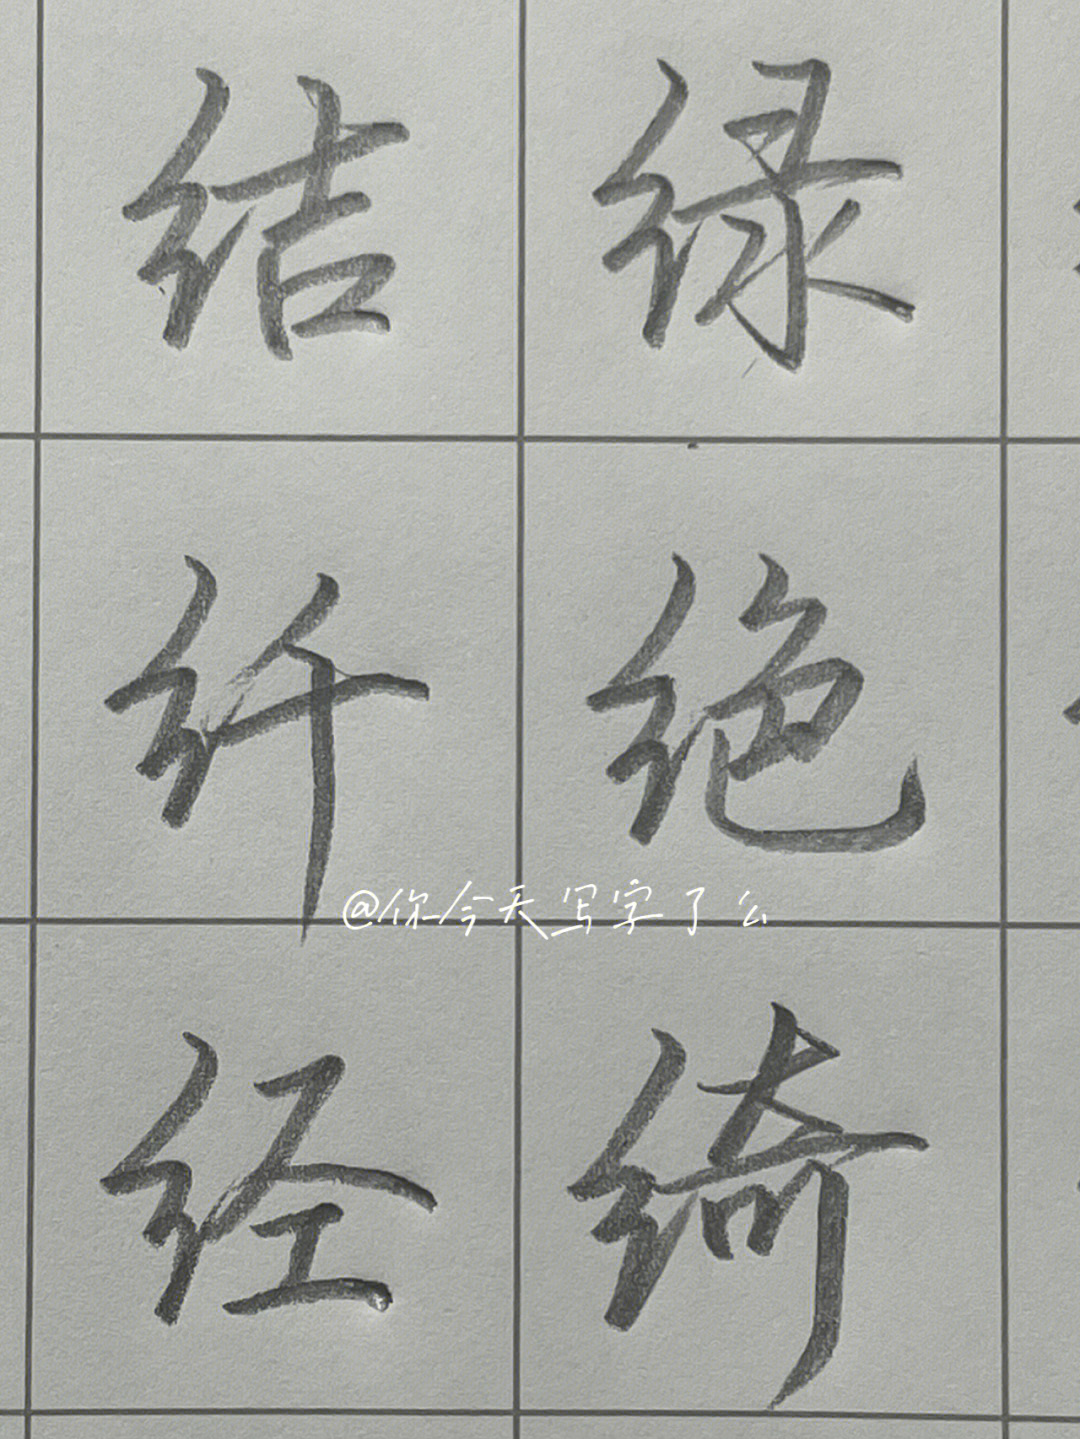 结 绿
纤 绝
@你今天写字了么
经 绮